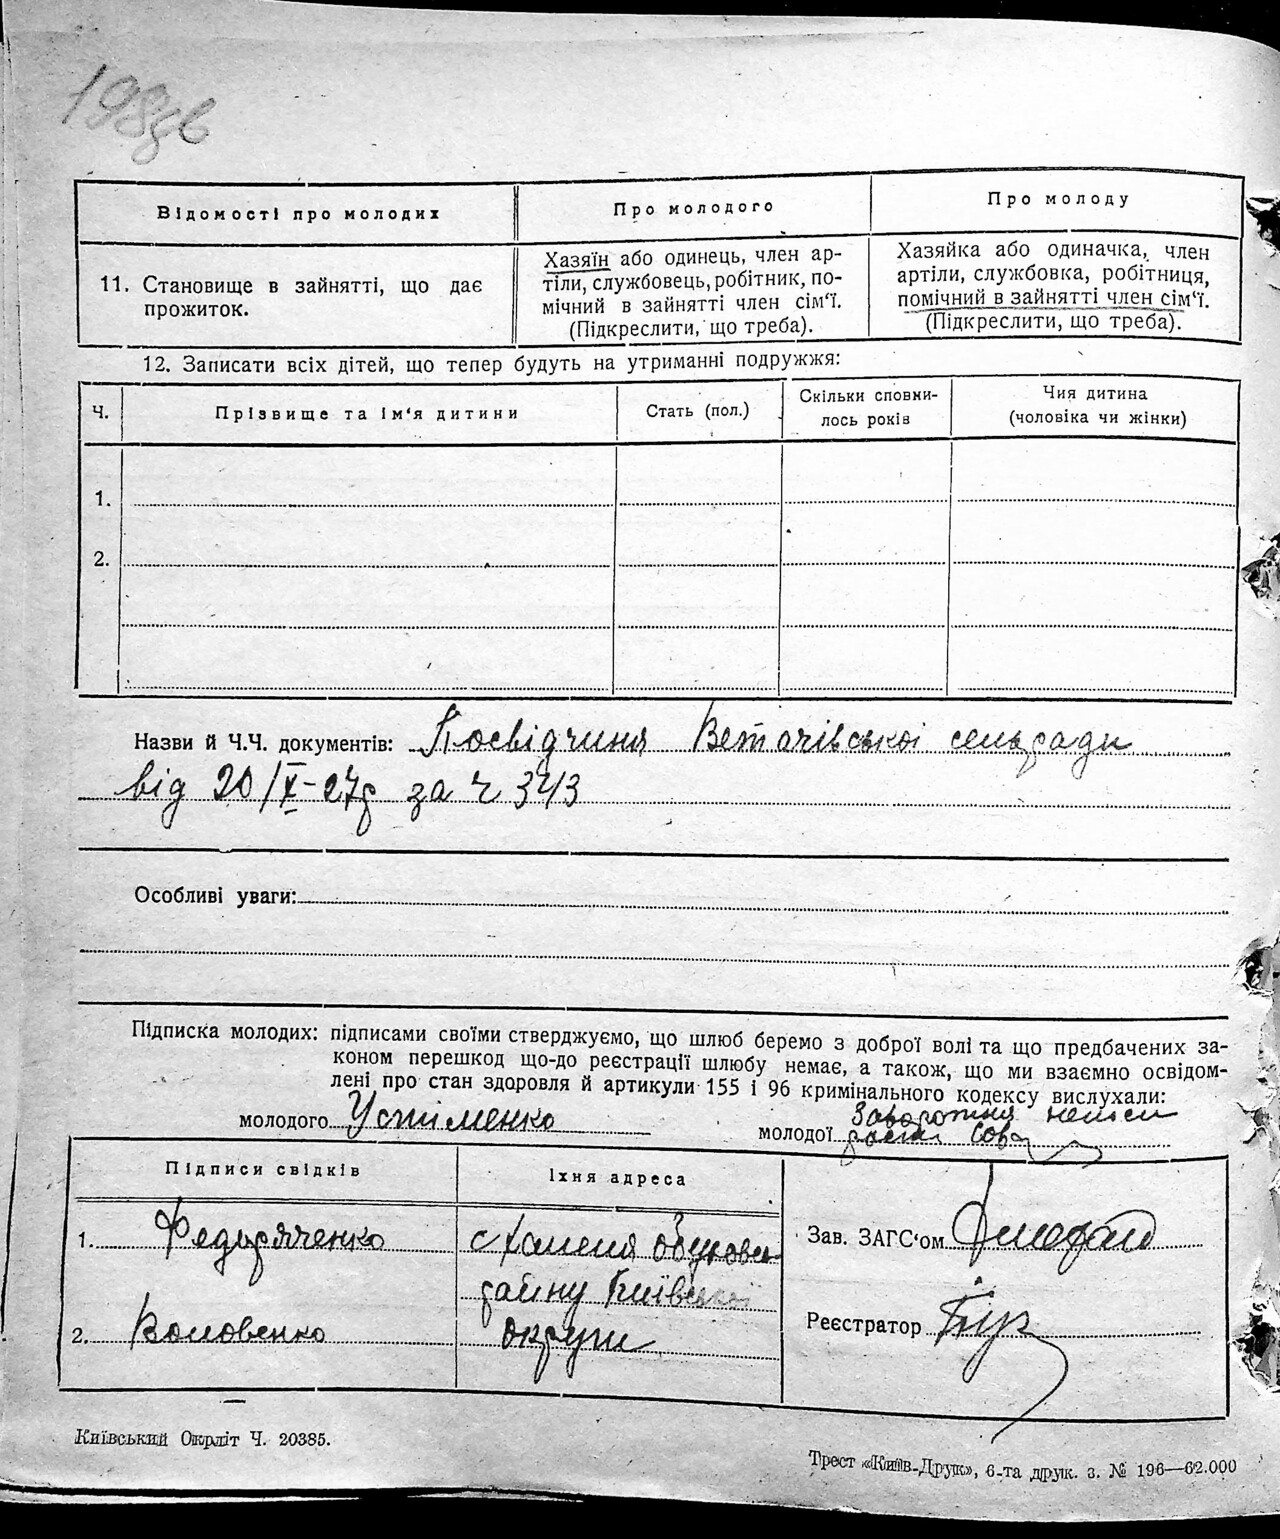 198зв
Відомості про молодих
Про молодого
Про молоду
11. Становище в зайнятті, що дає
прожиток.
Хазяїн або одинець, член ар-
тіли, службовець, робітник, по-
мічний в зайнятті член сім'ї.
(Підкреслити, що треба).
Хазяйка або одиначка, член
артіли, службовка, робітниця,
помічний в зайнятті член сім'ї.
(Підкреслити, що треба).
12. Записати всіх дітей, що тепер будуть на утриманні подружжя:
Ч.
Прізвище та ім'я дитини
Стать (пол.)
Скільки сповни-
лось років
Чия дитина
(чоловіка чи жінки)
1.
2.
Назви й Ч.Ч. документів: ПосвідчиняВетачівської сельради
від 20/X-27р за ч 343
Особливі уваги:
Підписка молодих: підписами своїми стверджуємо, що шлюб беремо з доброї волі та що предбачених за-
коном перешкод що-до реєстрації шлюбу немає, а також, що ми взаємно освідом-
лені про стан здоровля й артикули 155 і 96 кримінального кодексу вислухали:
молодого Устіменко
молодої
Підписи свідків
Їхня адреса
1. Федоряченко
с Халепя Обуховськ
району Київської
2. Воловенко
округи
Зав. ЗАГС'ом
Реєстратор
Київський Окрліт Ч. 20385.
Трест «Київ-Друк», 6-та друк. з. № 196—62.000